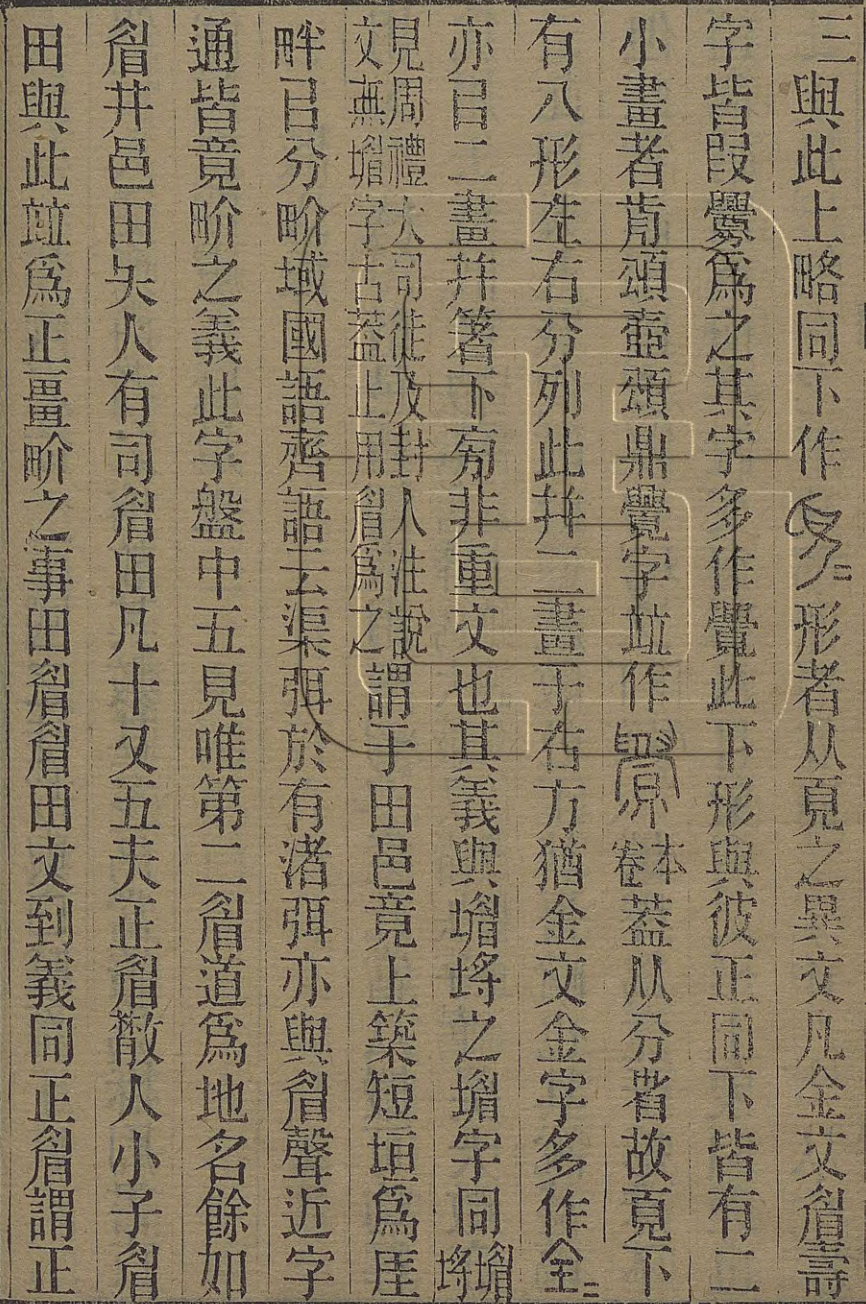 三與此上略同下作形者从頁之異文凡金文眉壽
字皆叚釁爲之其字多作釁此下形與彼正同下皆有二
小畫者肯頌壺頌鼎釁字竝作本卷蓋从分眢故頁下
有八形左右分列此幷二畫于右方猶金文金字多作
亦㠯二畫幷箸下旁非重文也其義與堳埒之堳字同堳埒
見周禮大司徒及封人注說
文無堳字古蓋止用眉爲之謂于田邑竟上築短垣爲厓
畔㠯分畍域國語齊語云渠弭於有渚弭亦與眉聲近字
通皆竟畍之義此字盤中五見唯第二眉道爲地名餘如
眉井邑田矢人有司眉田凡十又五夫正眉㪔人小子眉
田與此竝爲正畺畍之事田眉眉田文到義同正眉謂正